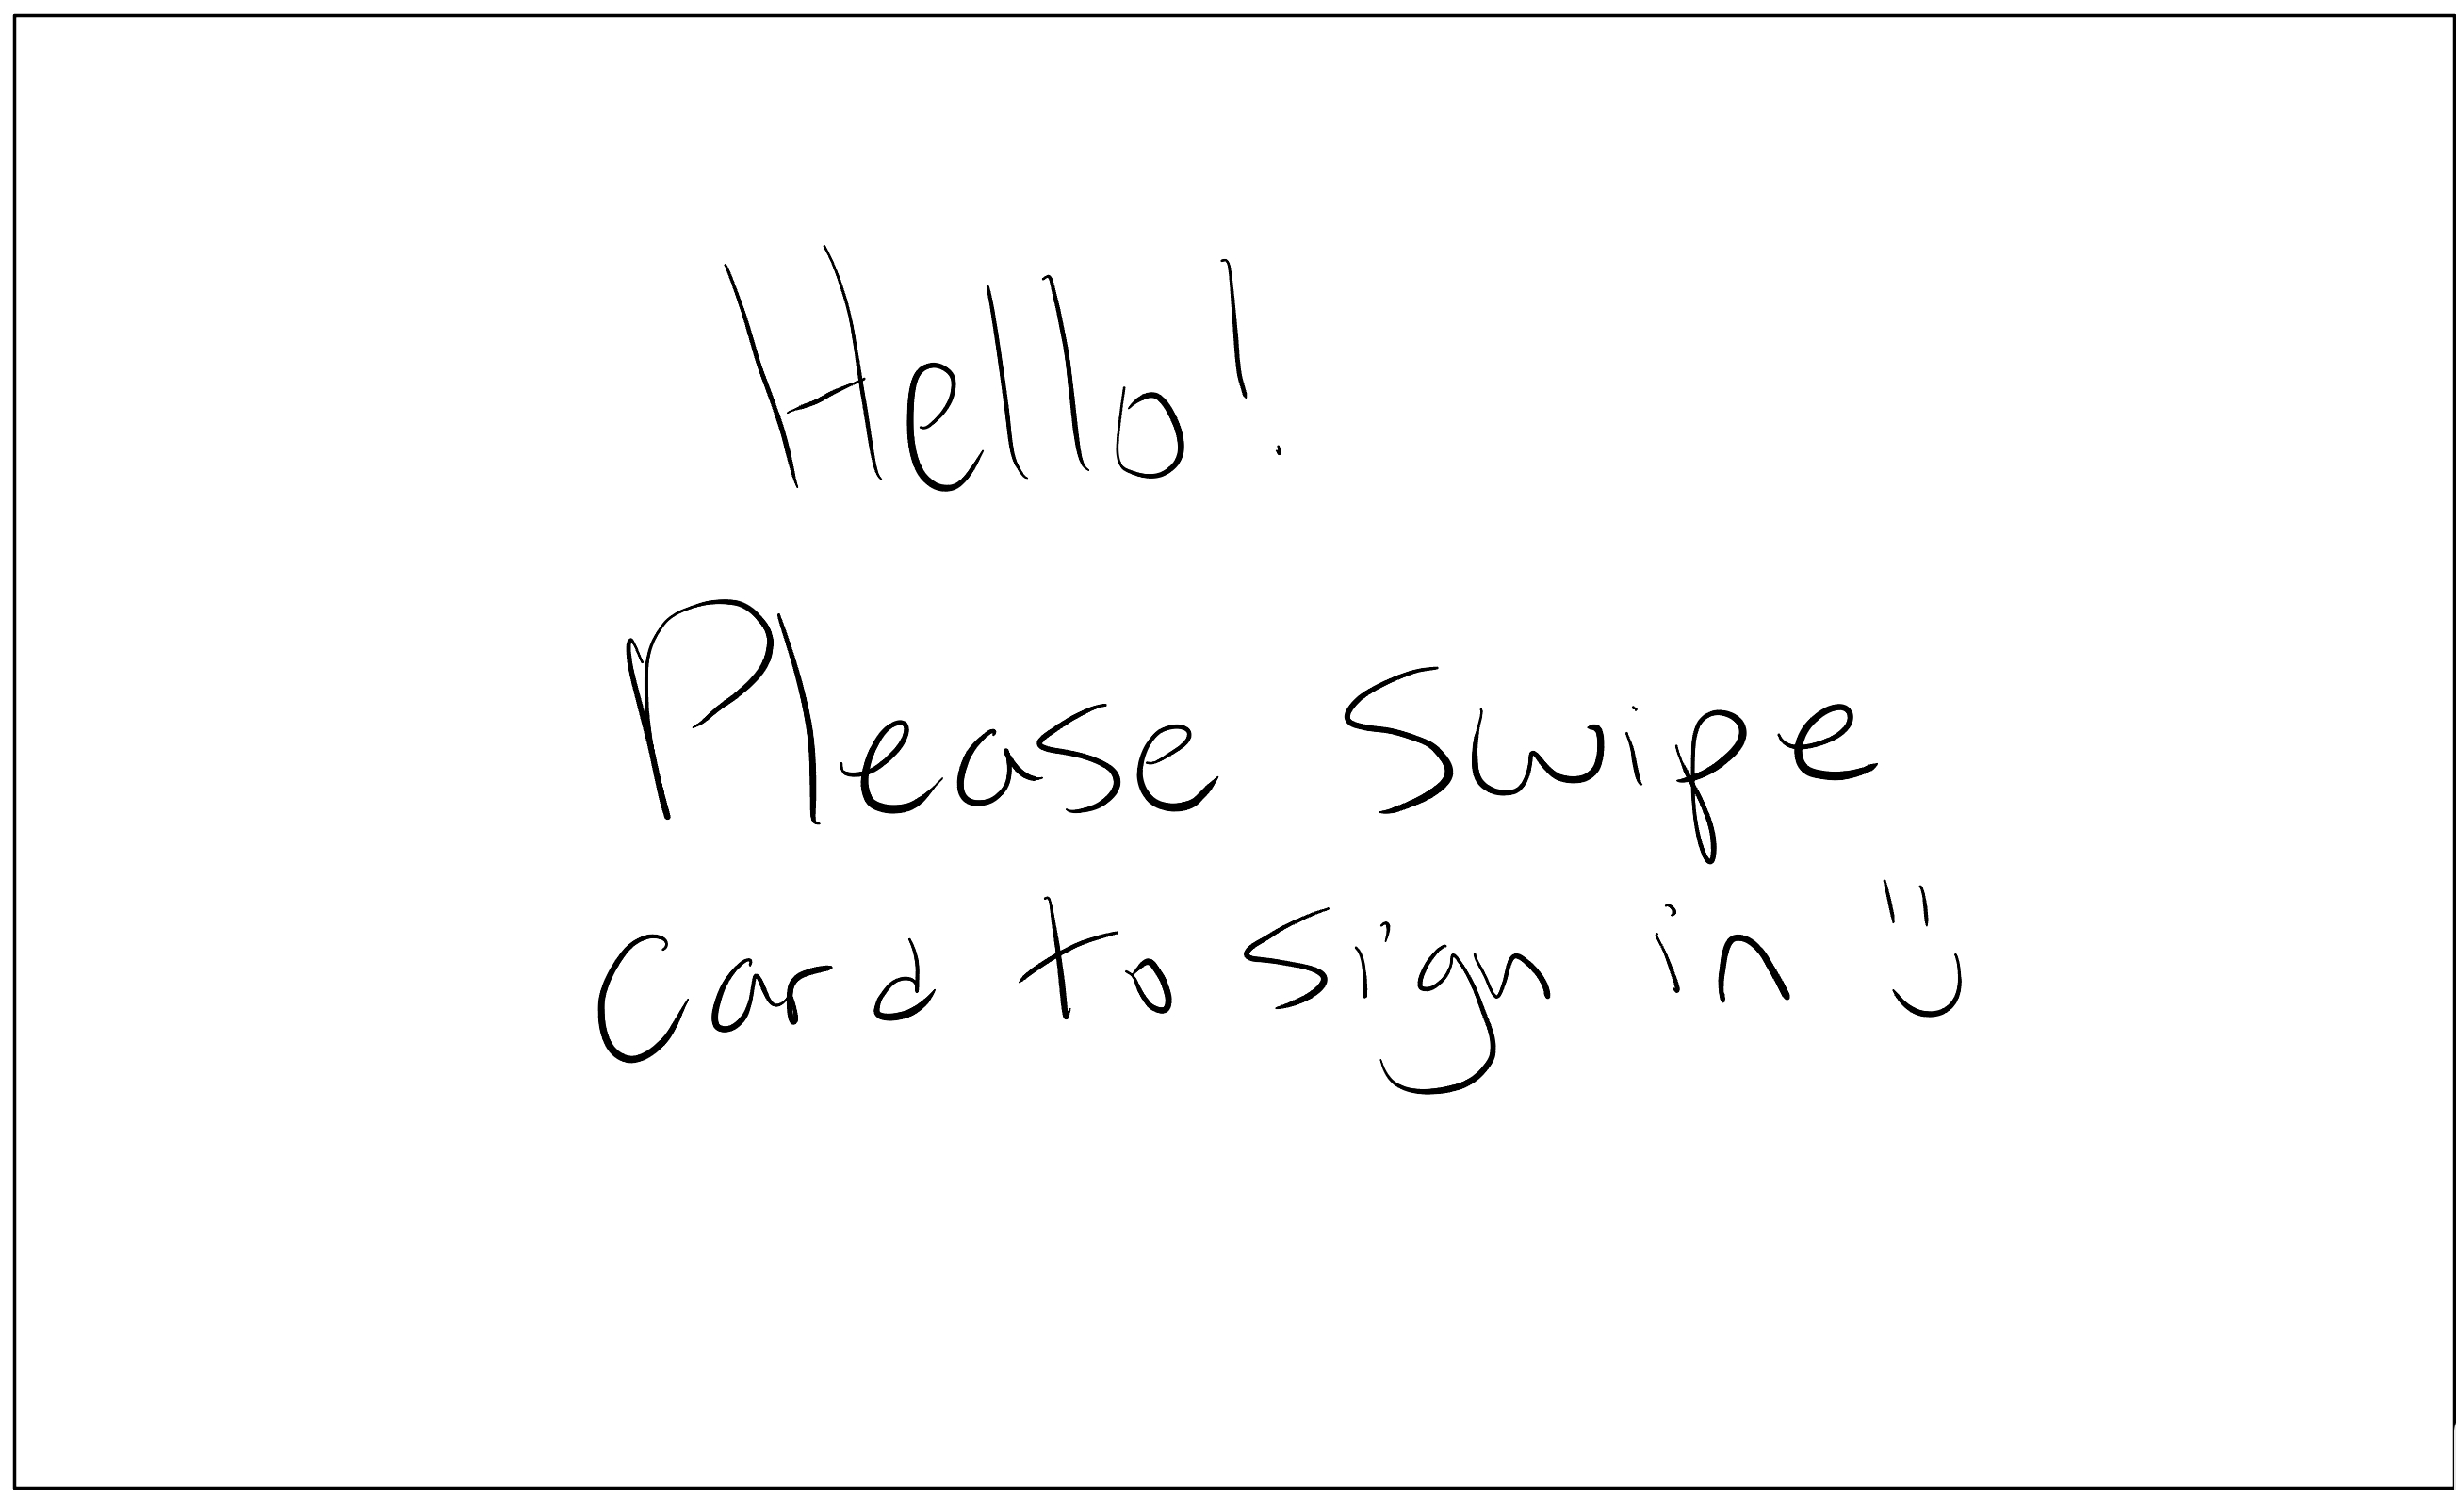 Hello!
Please Swipe
Card to sign in